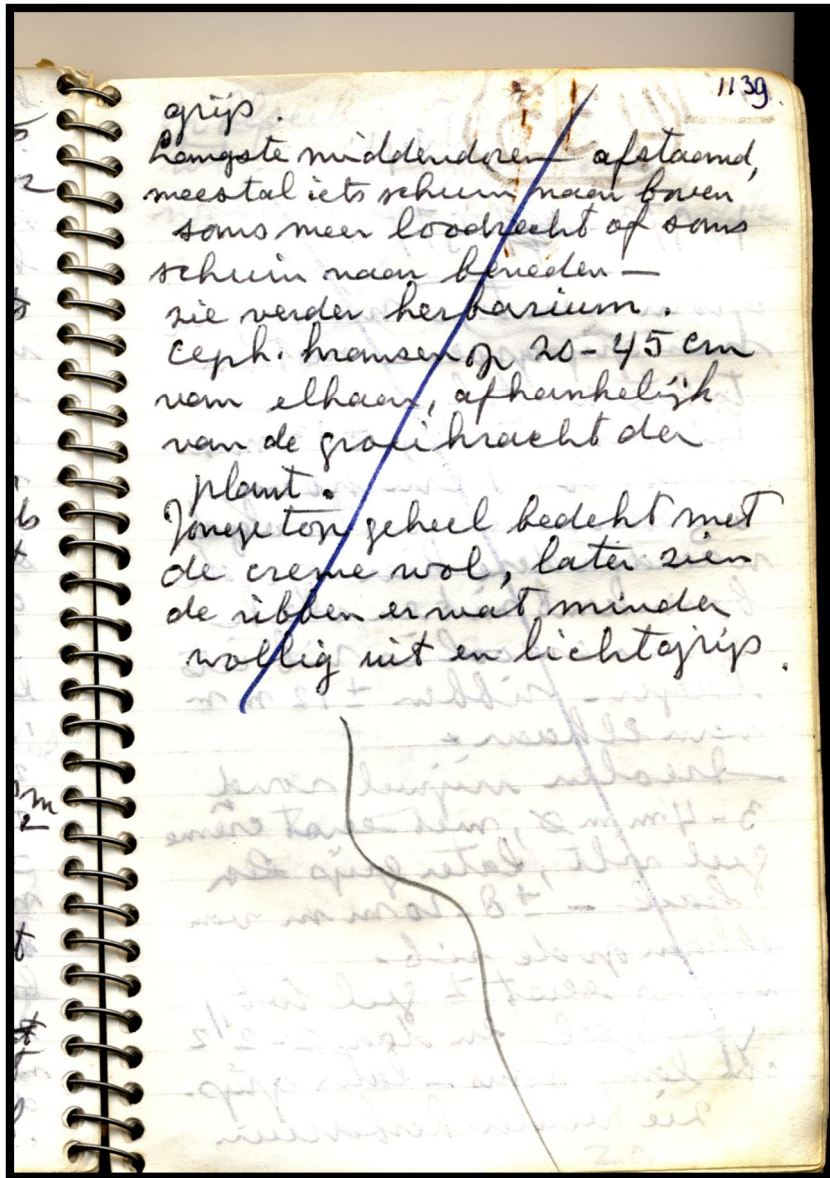 1139
grijs.
Langste middendoren afstaand,
meestal iets schuin naar boven
soms meer loodrecht of soms
schuin naar beneden —
zie verder herbarium.
Ceph. kransen op 20-45 cm
van elkaar, afhankelijk
van de groeikracht der
plant.
Jonge top geheel bedekt met
de creme wol, later zien
de ribben er wat minder
wollig uit en lichtgrijs.